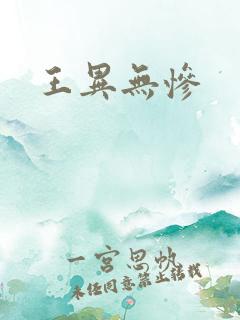 王異無慘
一宮思帆
未经同意禁止转载